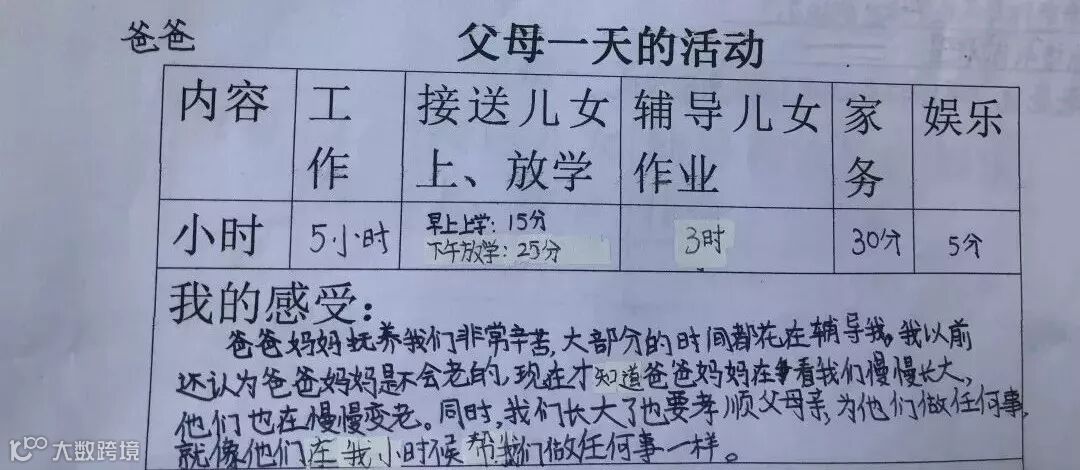 爸爸
父母一天的活动
内容 工作 接送儿女上、放学 辅导儿女作业 家务 娱乐
小时 5小时 早上上学:15分 下午放学:25分 3时 30分 5分
我的感受:
爸爸妈妈抚养我们非常辛苦,大部分的时间都花在辅导我,我以前
还认为爸爸妈妈是不会老的,现在才知道爸爸妈妈在看我们慢慢长大,
他们也在慢慢变老。同时,我们长大了也要孝顺父母亲,为他们做任何事,
就像他们在我小时候帮我们做任何事一样。
大数跨境